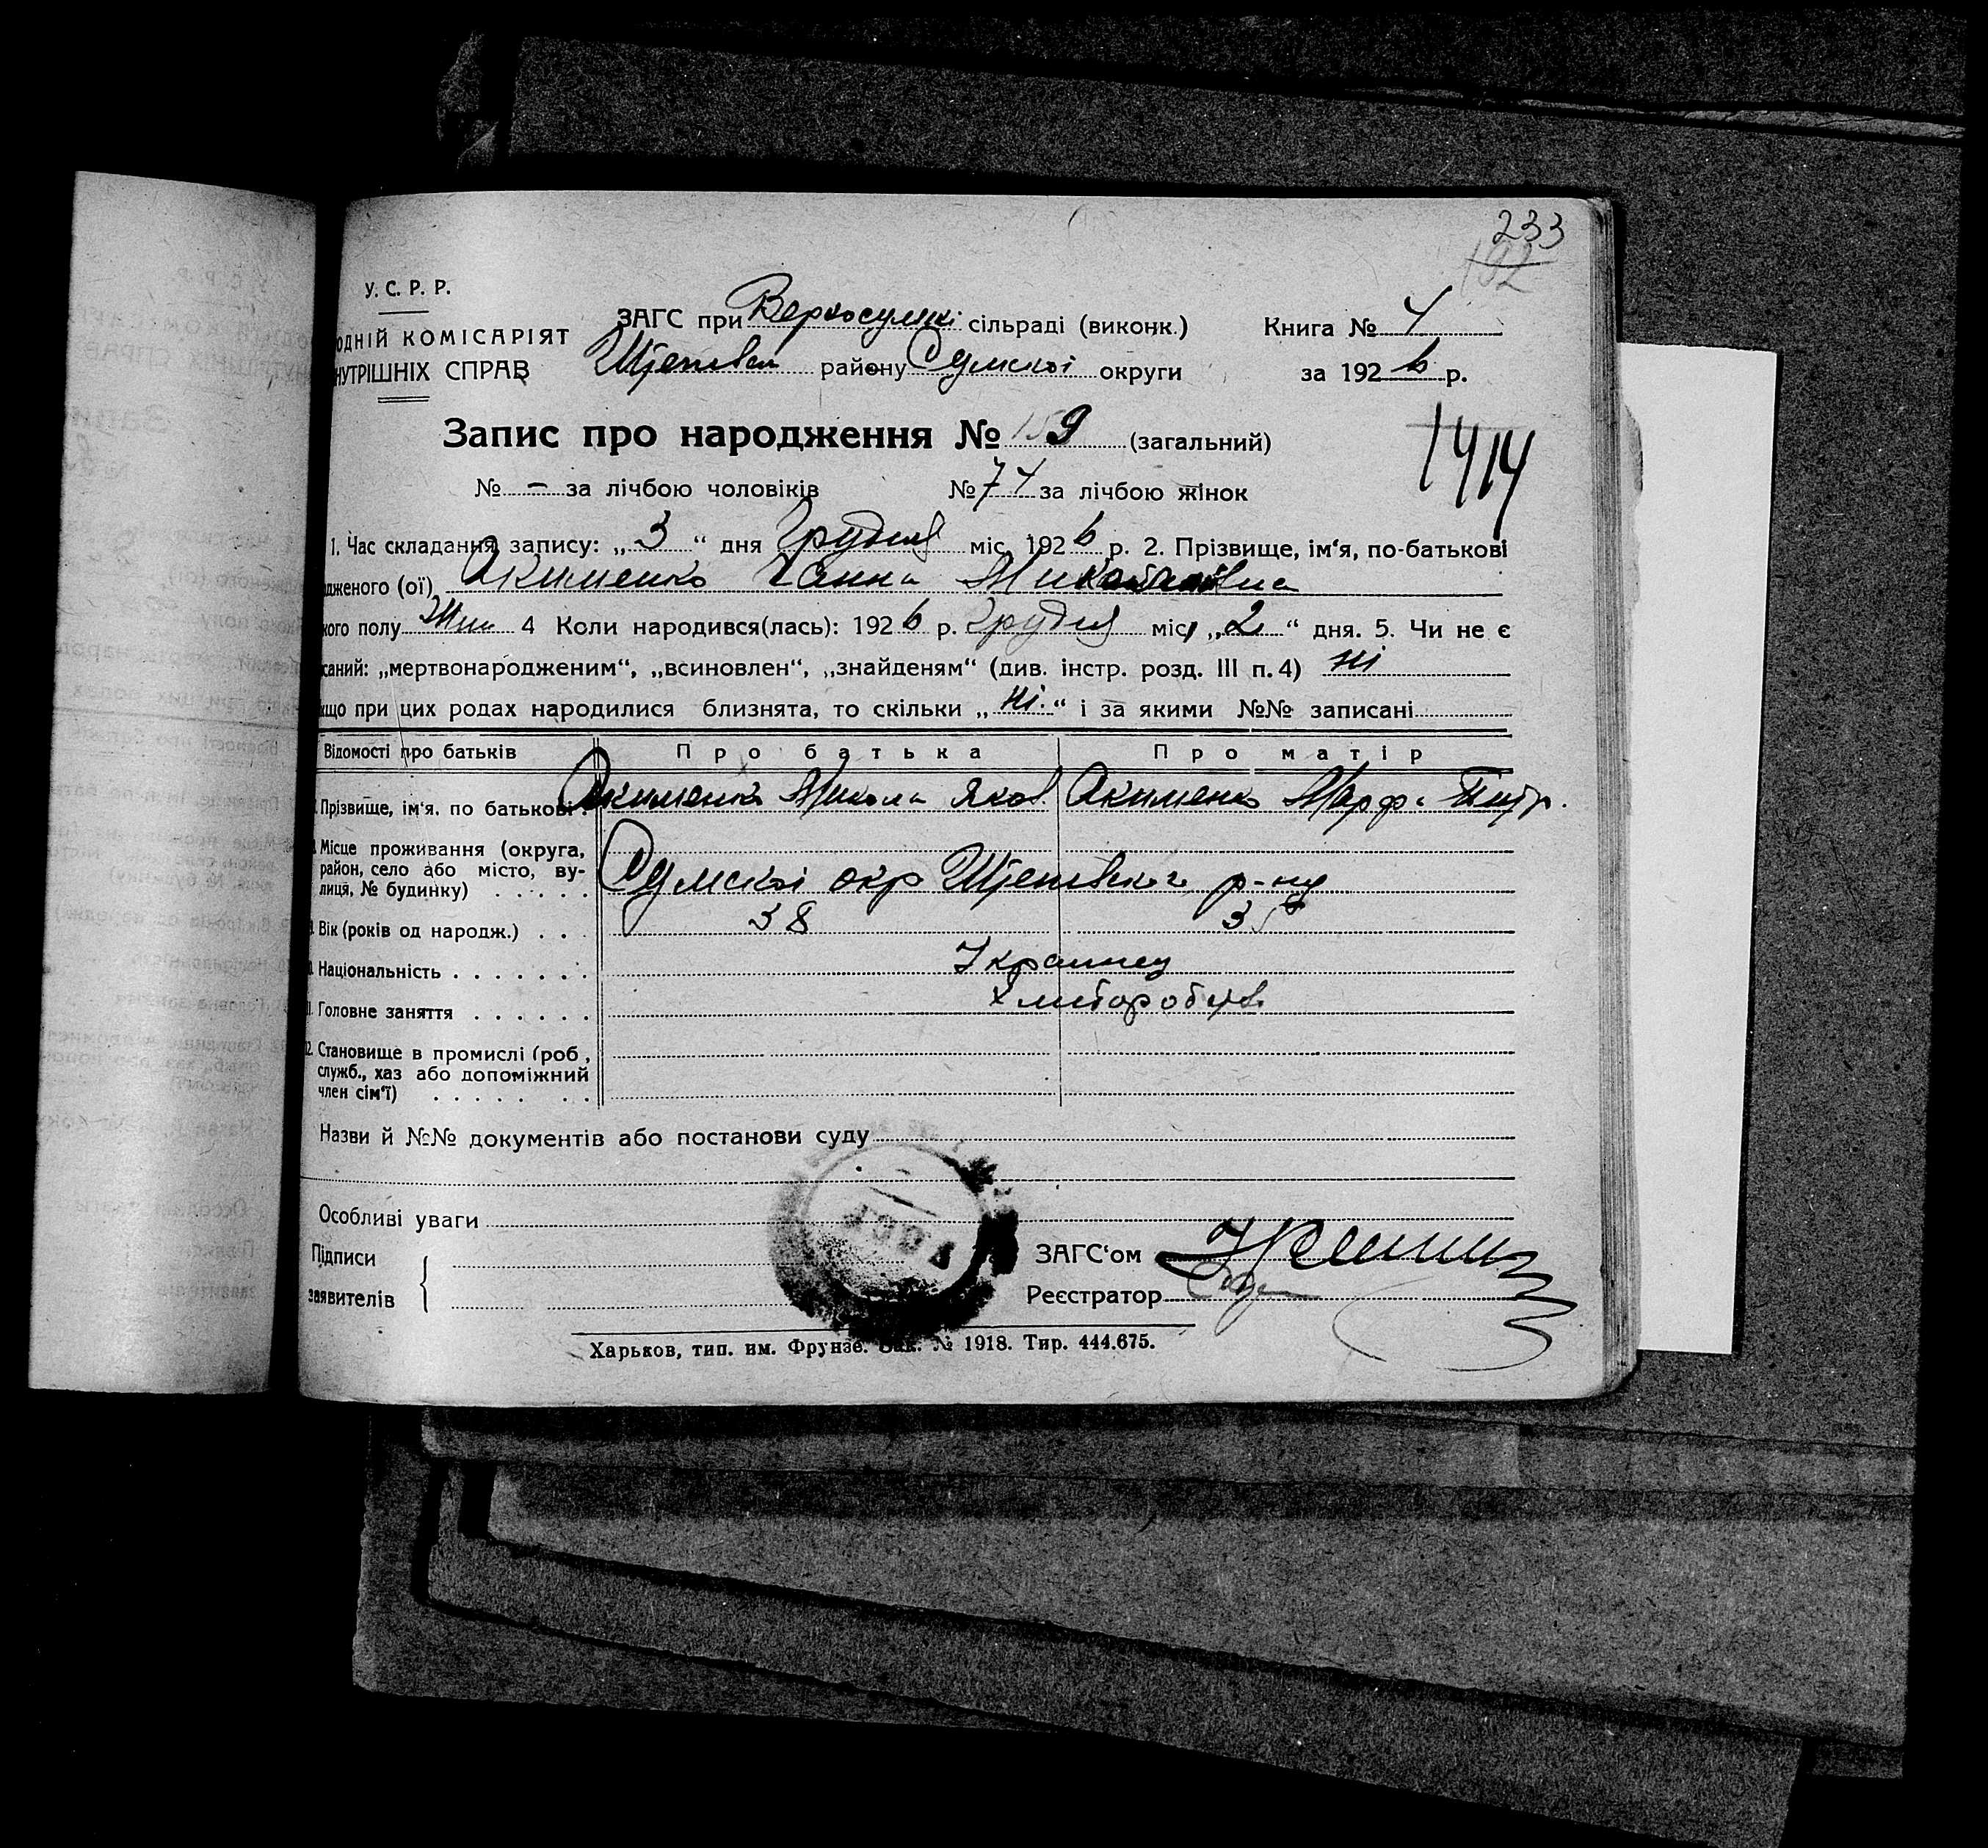 233
192
У. С. Р. Р.
ОДНІЙ КОМІСАРІЯТ
НУТРІШНІХ СПРАВ
ЗАГС при Верхосулкі сільраді (виконк.)
району Сумскої округи
Книга № 4
за 1926 р.
Запис про народження № 159 (загальний)
1414
№ – за лічбою чоловіків № 74 за лічбою жінок
1. Час складання запису: „3“ дня Грудня міс. 1926 р. 2. Прізвище, ім‘я, по-батькові
дженого (ої) Акименко Ганна Миколаївна
кого полу Жин 4 Коли народився(лась): 1926 р. Грудня міс. „2“ дня. 5. Чи не є
саний: „мертвонародженим“, „всиновлен“, „знайденям“ (див. інстр. розд. III п. 4) ні
кщо при цих родах народилися близнята, то скільки „ні.“ і за якими №№ записані
Відомості про батьків Про батька Про матір
Прізвище, ім‘я, по батькові. Акименко Микола Яков. Акименко Марфа Питр.
Місце проживання (округа,
район, село або місто, ву-
лиця, № будинку) Сумскої окр р-ну
Вік (років од народж.) 38 35
Національність Украинец
Головне заняття
2. Становище в промислі (роб.,
служб., хаз або допоміжний
член сім‘ї)
Назви й №№ документів або постанови суду
Особливі уваги
Підписи
заявителів
ЗАГС‘ом
Реєстратор
Харьков, тип. им. Фрунзе. Зак. № 1918. Тир. 444.675.